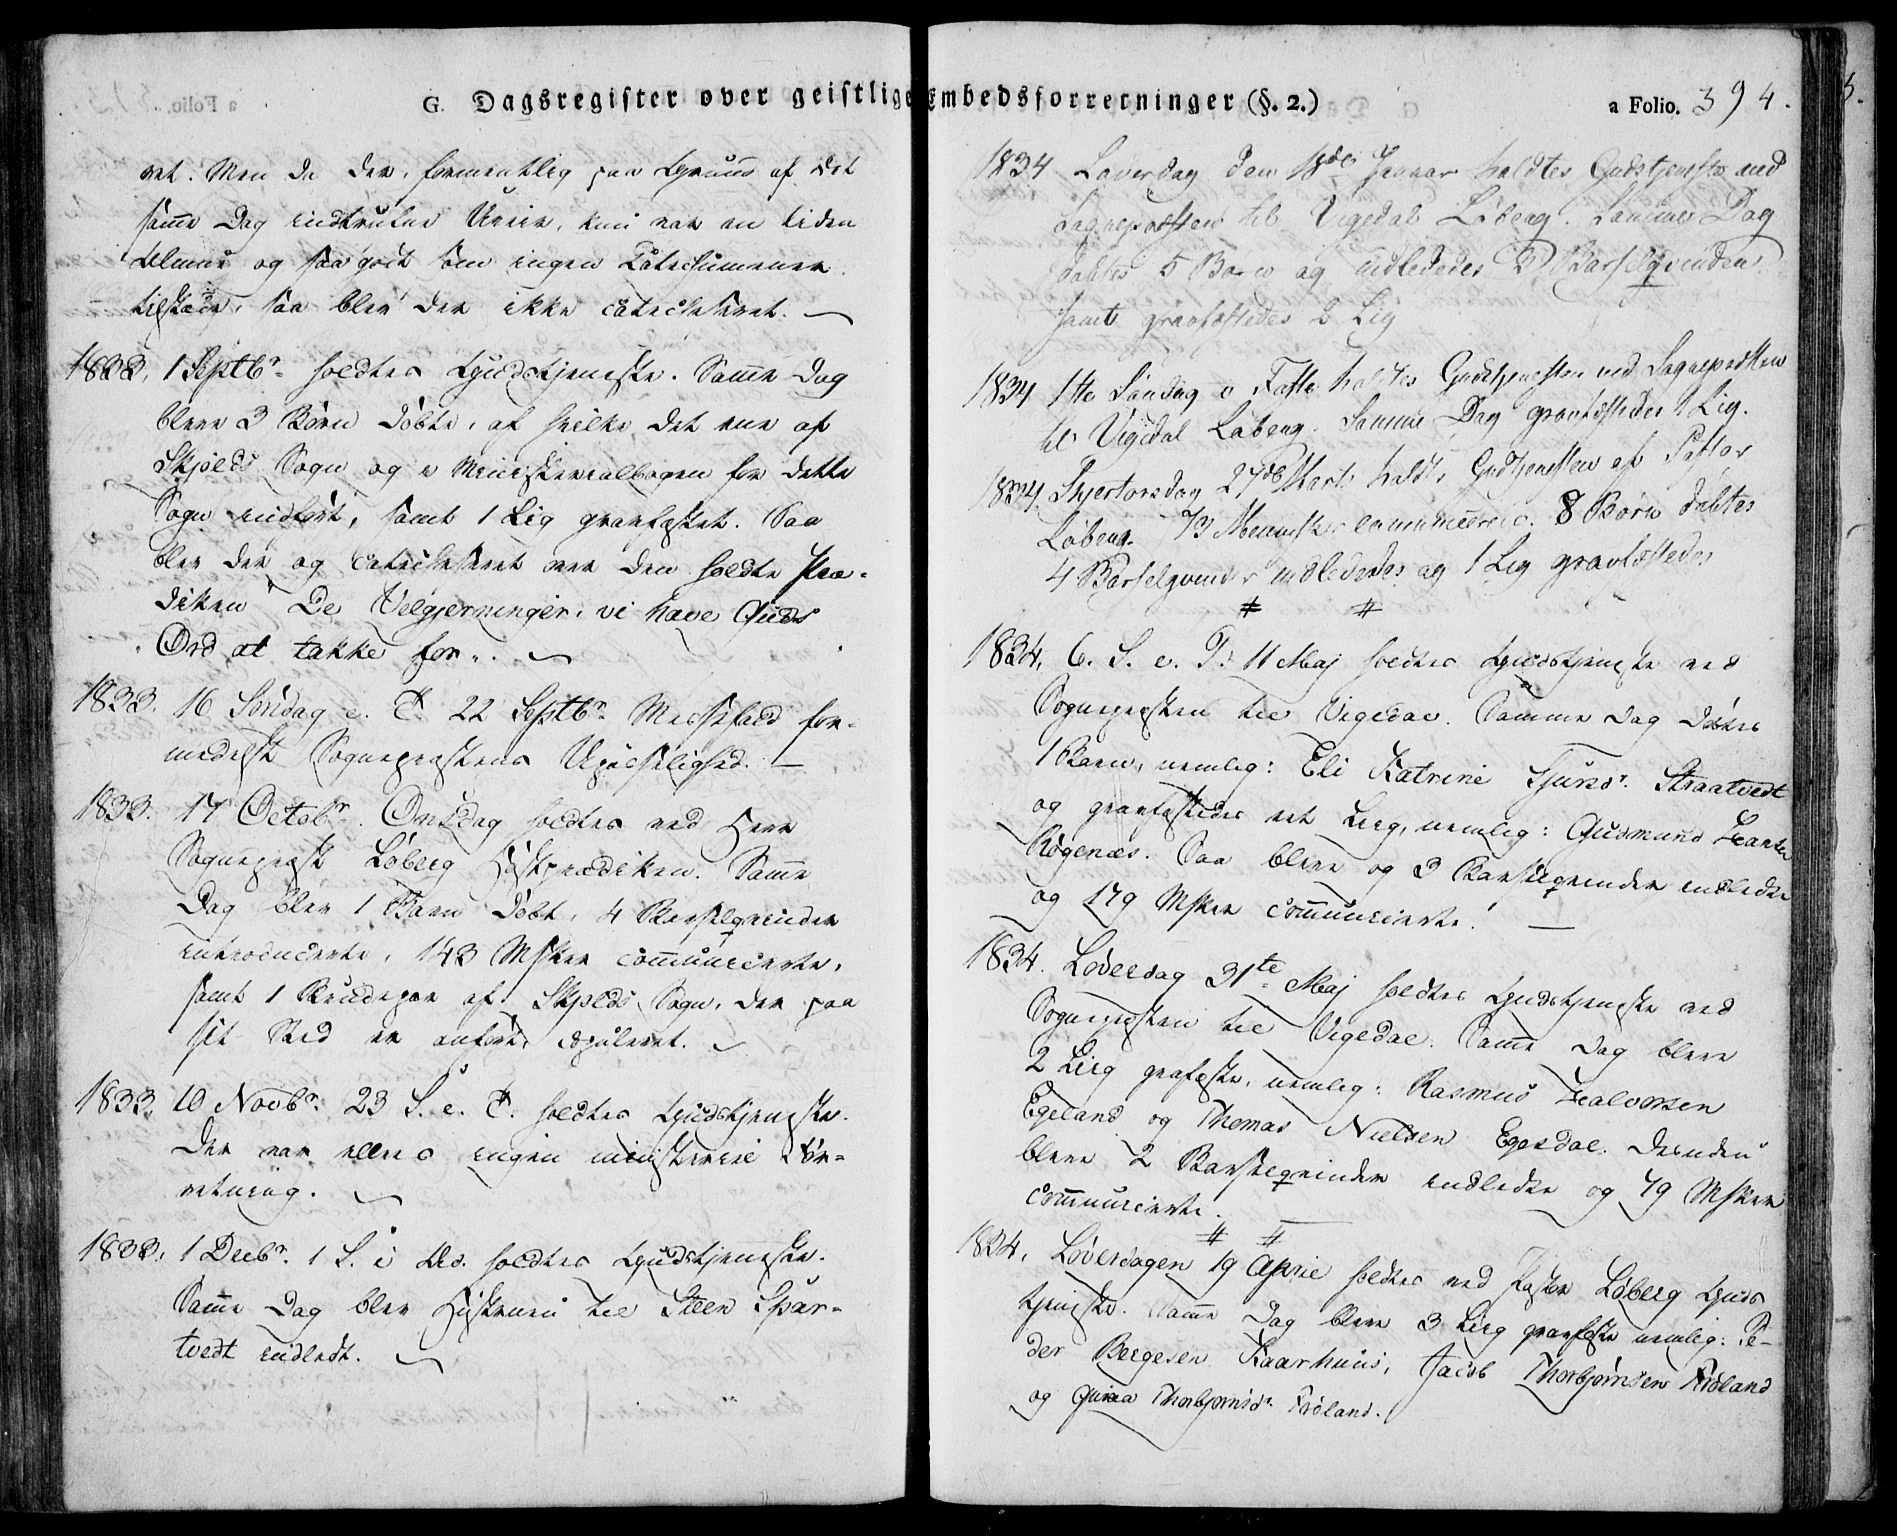 G. Dagsregister over geistlige Embedsforretninger (§. 2.)
a Folio. 394.
ret. Men da der, formentlig paa Grund af det
samme Dag indtrufne Uveir, kun var en liden
Almue og saa godt som ingen Catechumener
tilstæde, saa blev der ikke catechiseret.
1833. 1 Septbr. holdtes Gudstjeneste. Samme Dag
bleve 3 Børn døbte, af hvilke det ene af
Skjolds Sogn og i Ministerialbogen for dette
Sogn indført, samt 1 Lig gravfæstet. Saa
blev der og catechiseret over den holdte Præ-
diken "De Velgjerninger, vi have Guds
Ord at takke for".
1833. 16 Søndag e. T. 22 Septbr. Messefald for-
medelst Sognepræstens Upasselighed.
1833. 17 Octobr. Onsdag holdtes ved Herr
Sognepræst Løberg Høstprædiken. Samme
Dag blev 1 Barn døbt, 4 Barselqvinder
introducerte, 143 Msker communicerte,
samt 1 Brudepar af Skjolds Sogn, der paa
sit Sted er anført, copuleret.
1833. 10 Novbr. 23 S. e. T. holdtes Gudstjeneste.
Der var ellers ingen ministeriel For-
retning.
1833. 1 Decbr. 1 S. i Adv. holdtes Gudstjeneste.
Samme Dag blev Hustruen til Steen Spar-
tvedt indledt.
1834 Løverdag den 18de Januar holdtes Gudstjeneste ved
Sognepræsten til Vigedal Løberg. Samme Dag
døbtes 5 Børn og indlededes 2 Barselqvinder
samt gravfæstedes 2 Lig
1834 1te Søndag i Faste holdtes Gudstjenesten ved Sognepræsten
til Vigedal Løberg. Samme Dag gravfæstedes 1 Lig.
1834. Skjertorsdag 27de Marts holdtes Gudstjenesten af Pastor
Løberg. 73 Mennesker communicerede. 8 Børn døbtes
4 Barselqvinder indlededes og 1 Lig gravfæstedes
# #
1834. 6. S. e. P. 11 Maj holdtes Gudstjeneste ved
Sognepræsten til Vigedal. Samme Dag døbtes
1 Barn, nemlig: Eli Katrine Tjursdr. Straatvedt
og gravfæstedes et Liig, nemlig: Gudmund Hansen
Røgenæs. Saa bleve og 3 Barselqvinder indledte
og 179 Msker communicerte.
1834. Løverdag 31te Maj holdtes Gudstjeneste ved
Sognepræsten til Vigedal. Samme Dag bleve
2 Liig grafæste, nemlig: Rasmus Halvorsen
Egeland og Thomas Nielsen Egesdal. Desuden
bleve 2 Barselqvinder indledte og 79 Msker
communicerte.
# #
1834. Løverdagen 19 April holdtes ved Pastor Løberg Guds
tjeneste. Samme Dag bleve 3 Liig gravfæste nemlig: Pe-
der Bergesen Kaarhuus, Jacob Thorbjørnsen Frøland
og Guroa Thorbjørnsdr. Frøland.